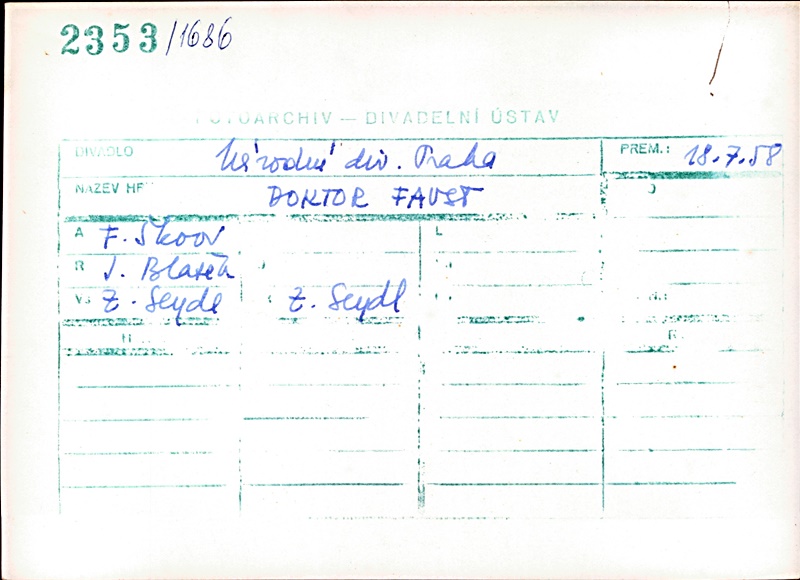 2353/1686
FOTOARCHIV — DIVADELNÍ ÚSTAV
DIVADLO Národní div. Praha PREM.: 18.7.58
NÁZEV HR DOKTOR FAUST
A F. Škoov L
R J. Blažek
VS Z. Seydl Z. Seydl
H R